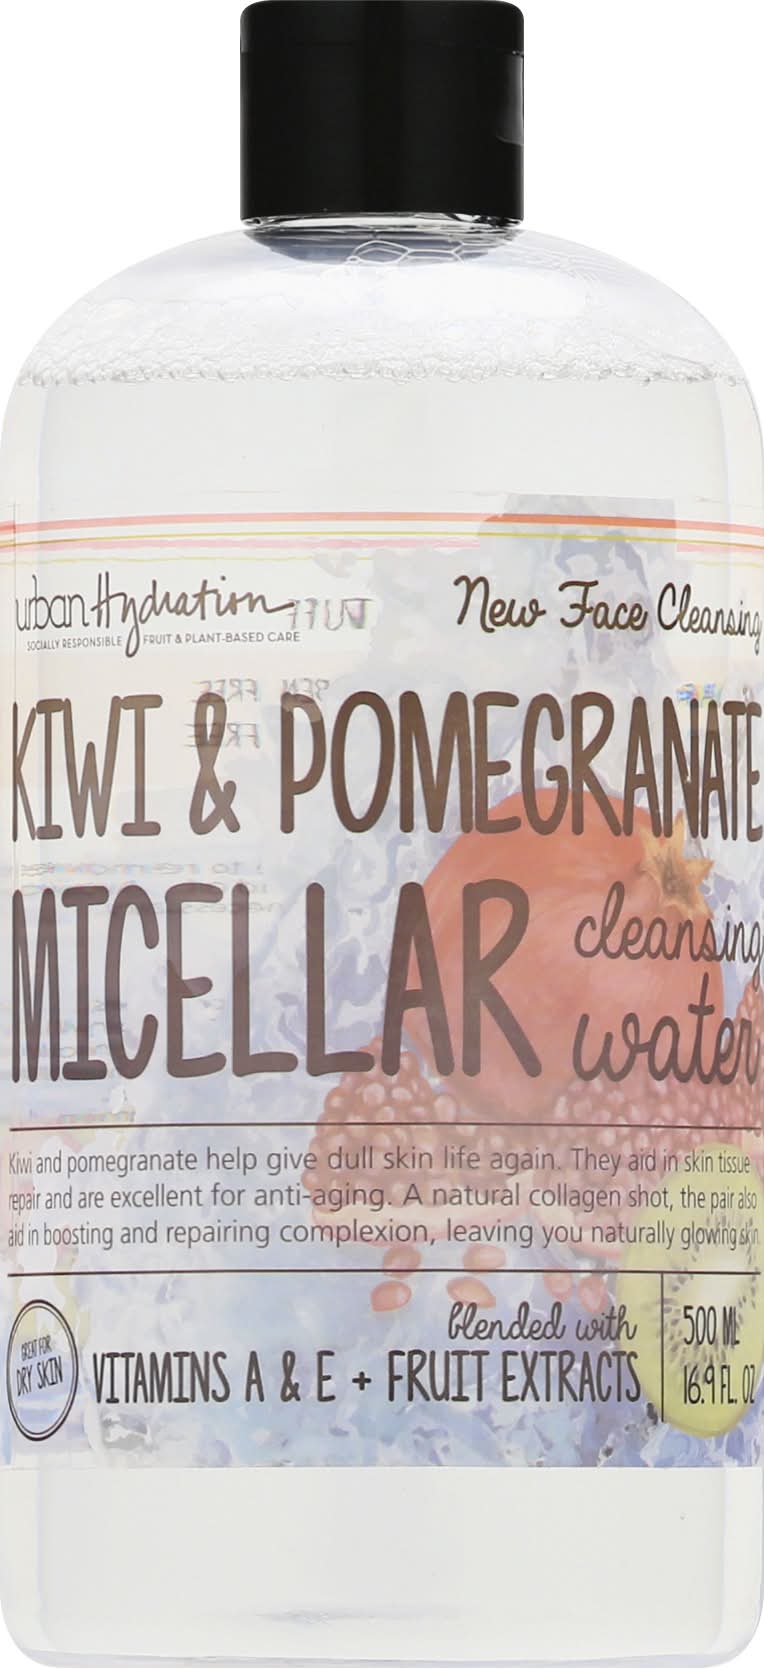 urban Hydration
SOCIALLY RESPONSIBLE FRUIT & PLANT-BASED CARE
New Face Cleansing
KIWI & POMEGRANATE
MICELLAR cleansing water
Kiwi and pomegranate help give dull skin life again. They aid in skin tissue
repair and are excellent for anti-aging. A natural collagen shot, the pair also
aid in boosting and repairing complexion, leaving you naturally glowing skin.
GREAT FOR
DRY SKIN
blended with
VITAMINS A & E + FRUIT EXTRACTS
500 ML
16.9 FL. OZ